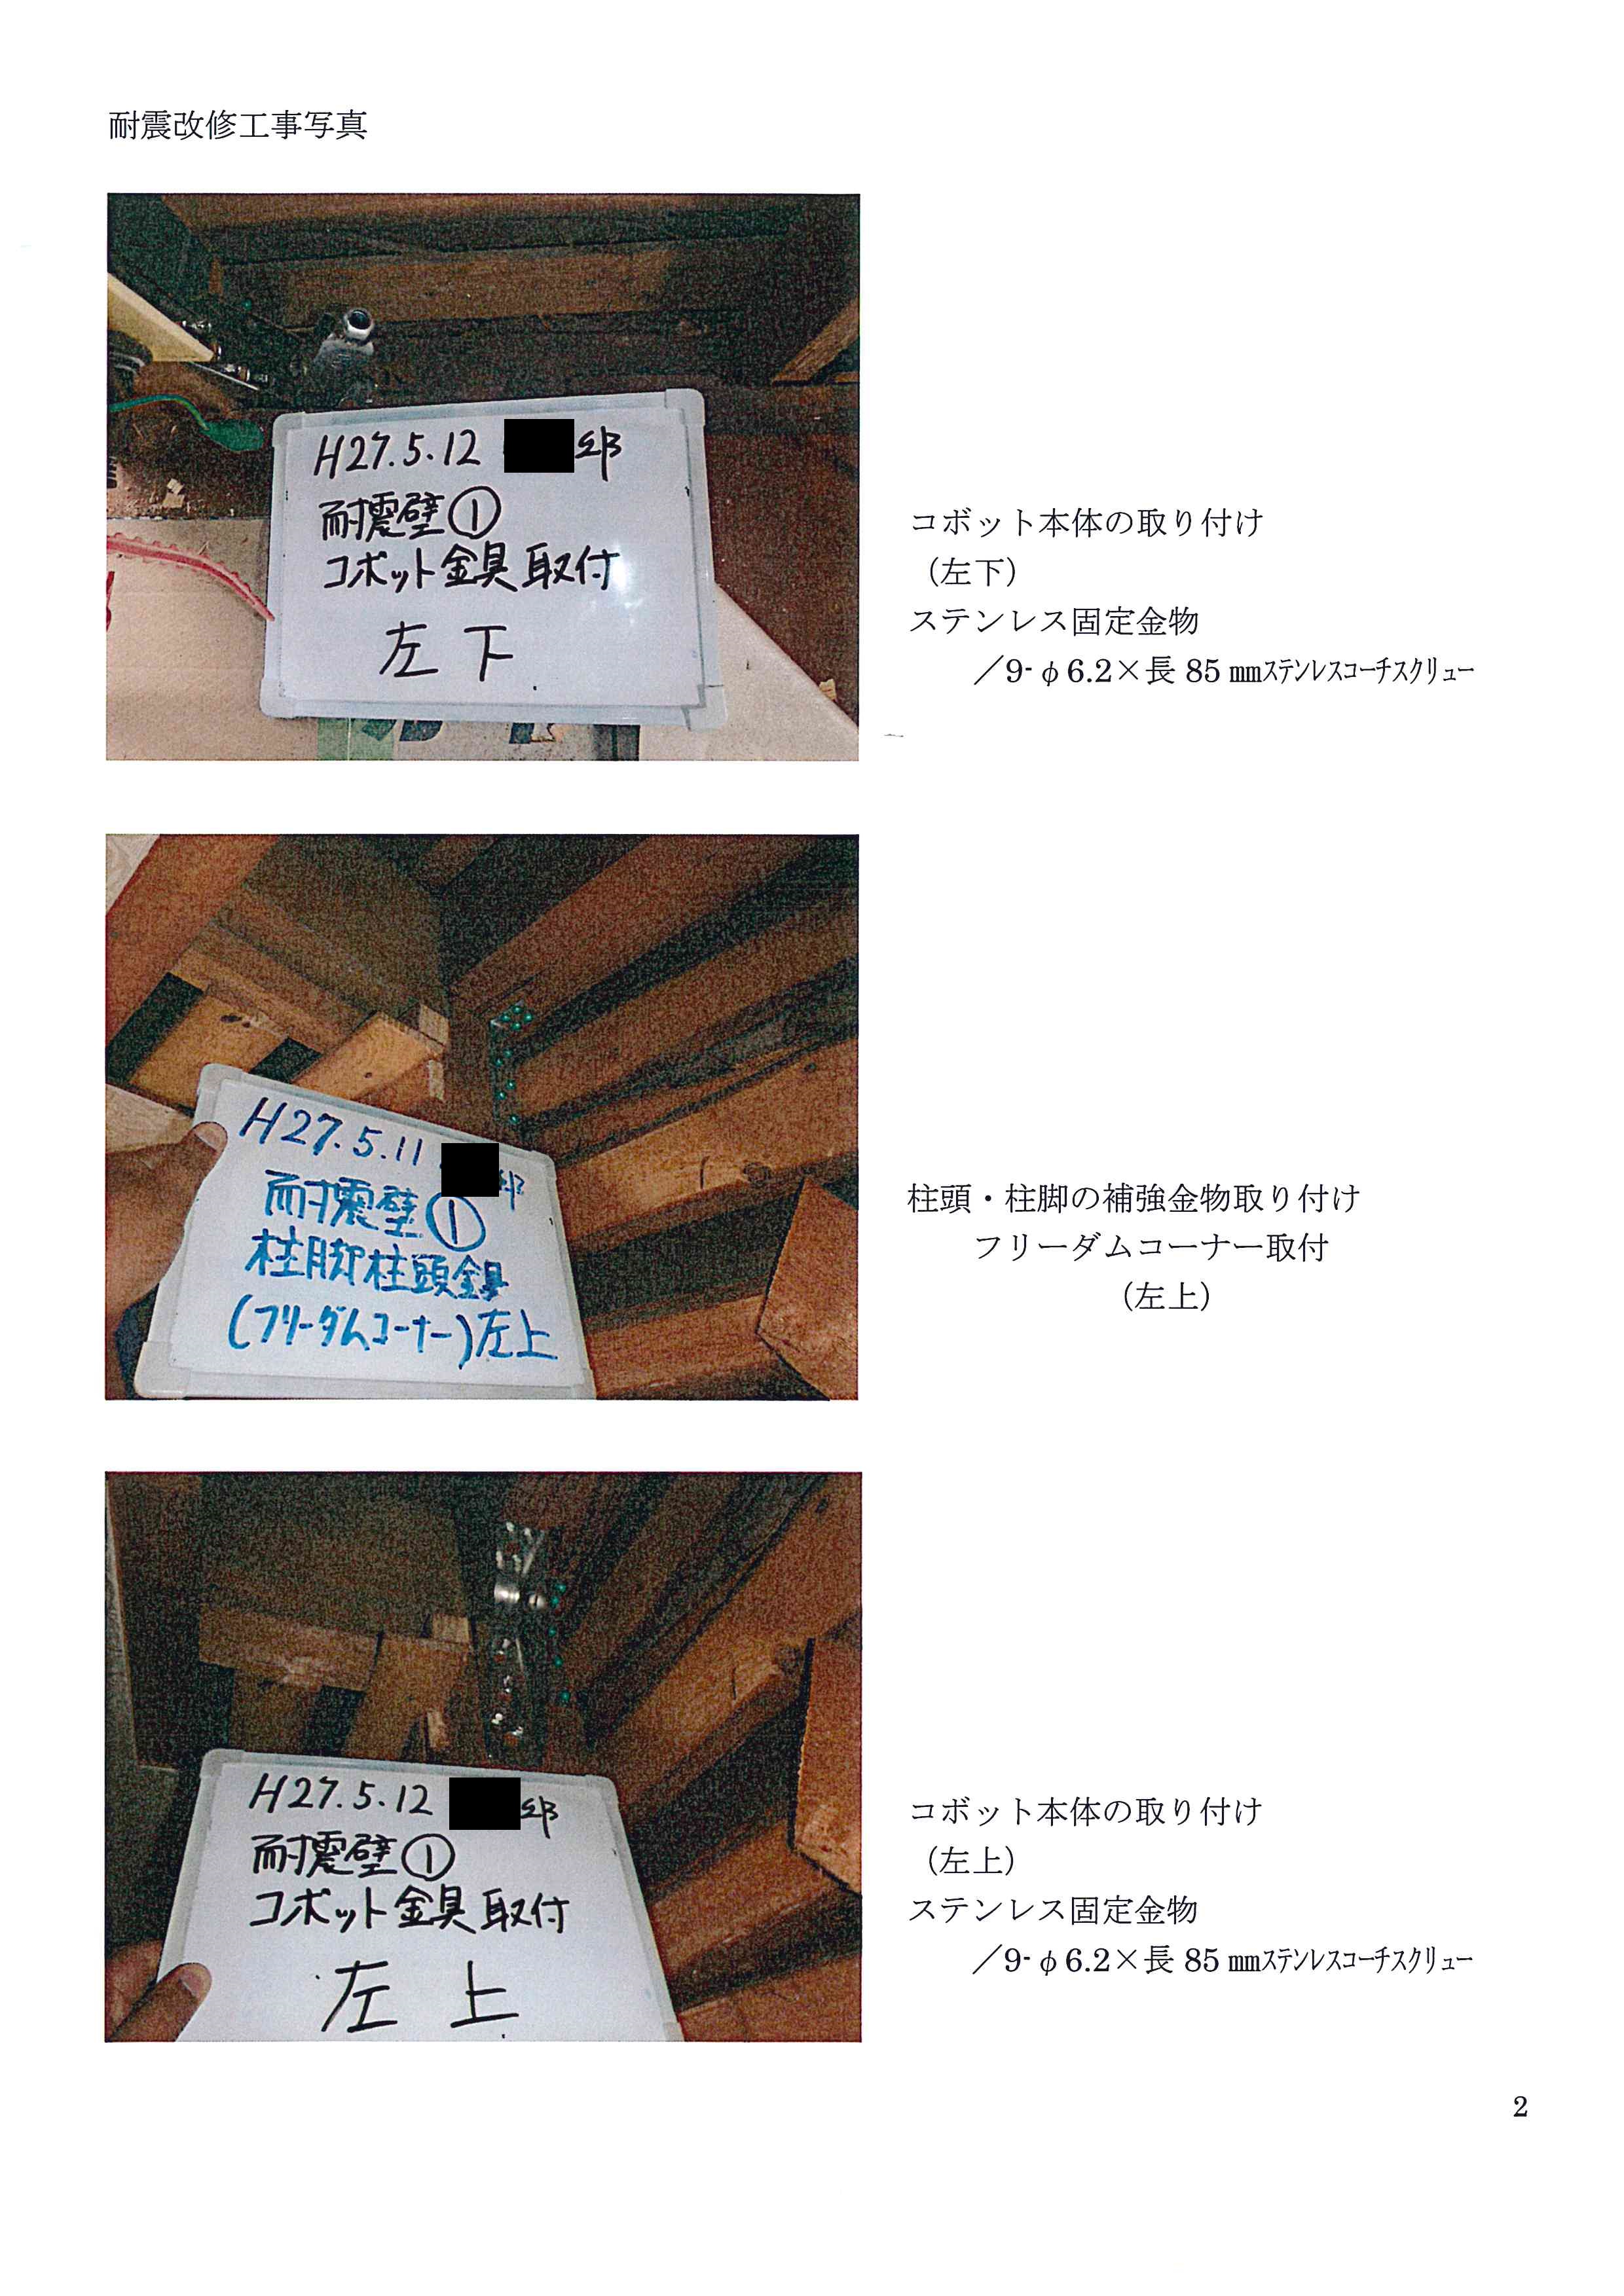 耐震改修工事写真
H27.5.12 邸
耐震壁①
コボット金具取付
左下
コボット本体の取り付け
（左下）
ステンレス固定金物
／9-φ6.2×長 85 ㎜ｽﾃﾝﾚｽｺｰﾁｽｸﾘｭｰ
H27.5.11 邸
耐震壁①
柱脚柱頭金具
(フリーダムコーナー)左上
柱頭・柱脚の補強金物取り付け
フリーダムコーナー取付
（左上）
H27.5.12 邸
耐震壁①
コボット金具取付
左上
コボット本体の取り付け
（左上）
ステンレス固定金物
／9-φ6.2×長 85 ㎜ｽﾃﾝﾚｽｺｰﾁｽｸﾘｭｰ
2